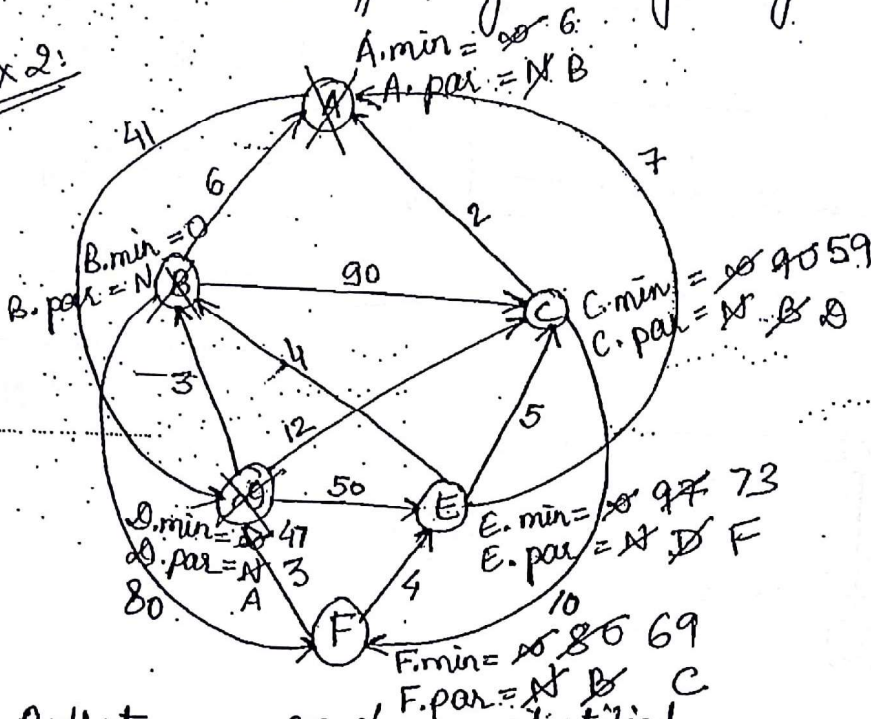 x 2:
A.min = ∞ 6
A.par = N B
A
41
7
6
2
B.min = 0
B.par = N
B
90
C
C.min = ∞ 90 59
C.par = N B D
4
3
12
5
50
E
D.min = ∞ 47
D.par = N
A
3
E.min = ∞ 97 73
E.par = N D F
80
4
10
F
F.min = ∞ 80 69
F.par = N B C